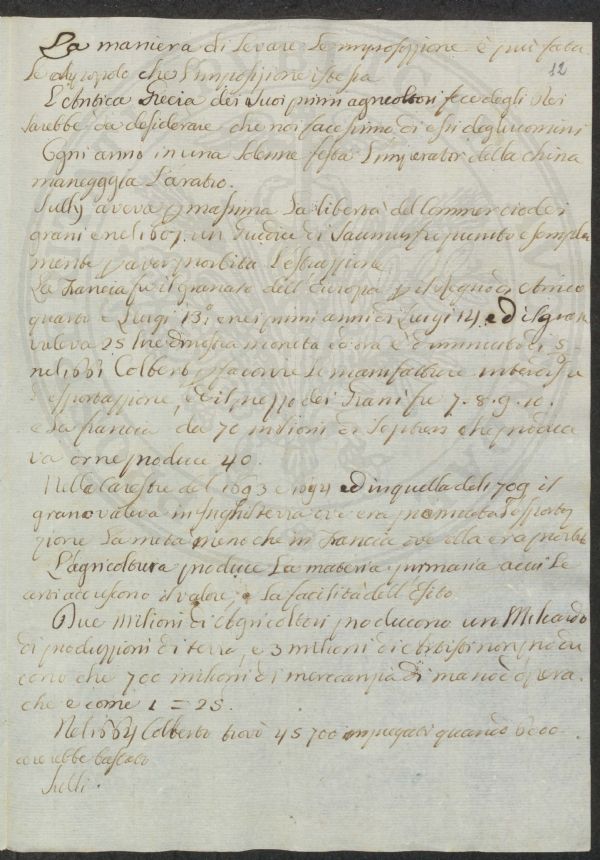 La maniera di levare le imposizione è più fata
le al popolo che l'imposizione istessa 12
L'Antica Grecia dei suoi primi agricoltori fece degli Dei
sarebbe da desiderare che noi facessimo di essi degli uomini
Ogni anno in una solenne festa l'Imperator della china
maneggia l'aratro.
Sully aveva p massima la libertà del Commercio dei
grani e nel 1607. un Giudice di Saumur fu punito esempla
mente p aver proibita l'estrazione
La Francia fu il granaro dell'Europa p il Regno di Enrico
quarto e Luigi 13.° e nei primi anni di Luigi 14 ed il grano
valeva 25 lire di nostra moneta ed ora è diminuito di 5
nel 1661 Colbert p favorire le manifatture interdisse
l'esportazione, ed il prezzo dei Grani fu 7. 8. 9. 10.
e la francia da 70 milioni di Septiers che produce
va or ne produce 40.
Nelle carestie del 1693 e 1694 ed in quella del 1709 il
grano valeva in Inghilterra ove era premiata l'esporta
zione la metà meno che in Francia ove ella era proibita
L'agricoltura produce la materia primaria a cui le
arti accrescono il valore, e la facilità dell'Esito
Due milioni di Agricoltori producono un Miliardo
di produzzioni di terra, e 3 milioni di Artisti non produ
cono che 700 milioni di mercanzia di mano d'opera.
che è come 1 = 25.
Nel 1664 Colberto trovò 45700 impiegati quando 6000
ne sarebbe bastato
Sulli.